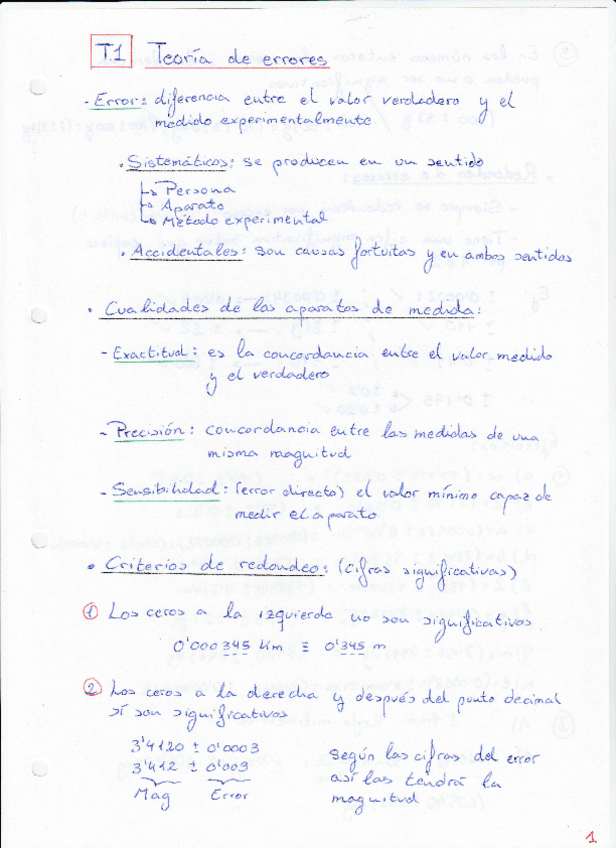 T1 Teoría de errores
- Error: diferencia entre el valor verdadero y el
medido experimentalmente
• Sistemáticos: se producen en un sentido
↳ Persona
↳ Aparato
↳ Método experimental
• Accidentales: son causas fortuitas y en ambos sentidos
• Cualidades de los aparatos de medida:
- Exactitud: es la concordancia entre el valor medido
y el verdadero
- Precisión: concordancia entre las medidas de una
misma magnitud
- Sensibilidad: (error directo) el valor mínimo capaz de
medir el aparato.
• Criterios de redondeo: (cifras significativas)
① Los ceros a la izquierda no son significativos.
0'000345 Km ≡ 0'345 m
② Los ceros a la derecha y después del punto decimal
sí son significativos
3'4120 ± 0'0003
3'412 ± 0'003
Mag Error
Según las cifras del error
así las tendrá la
magnitud
1